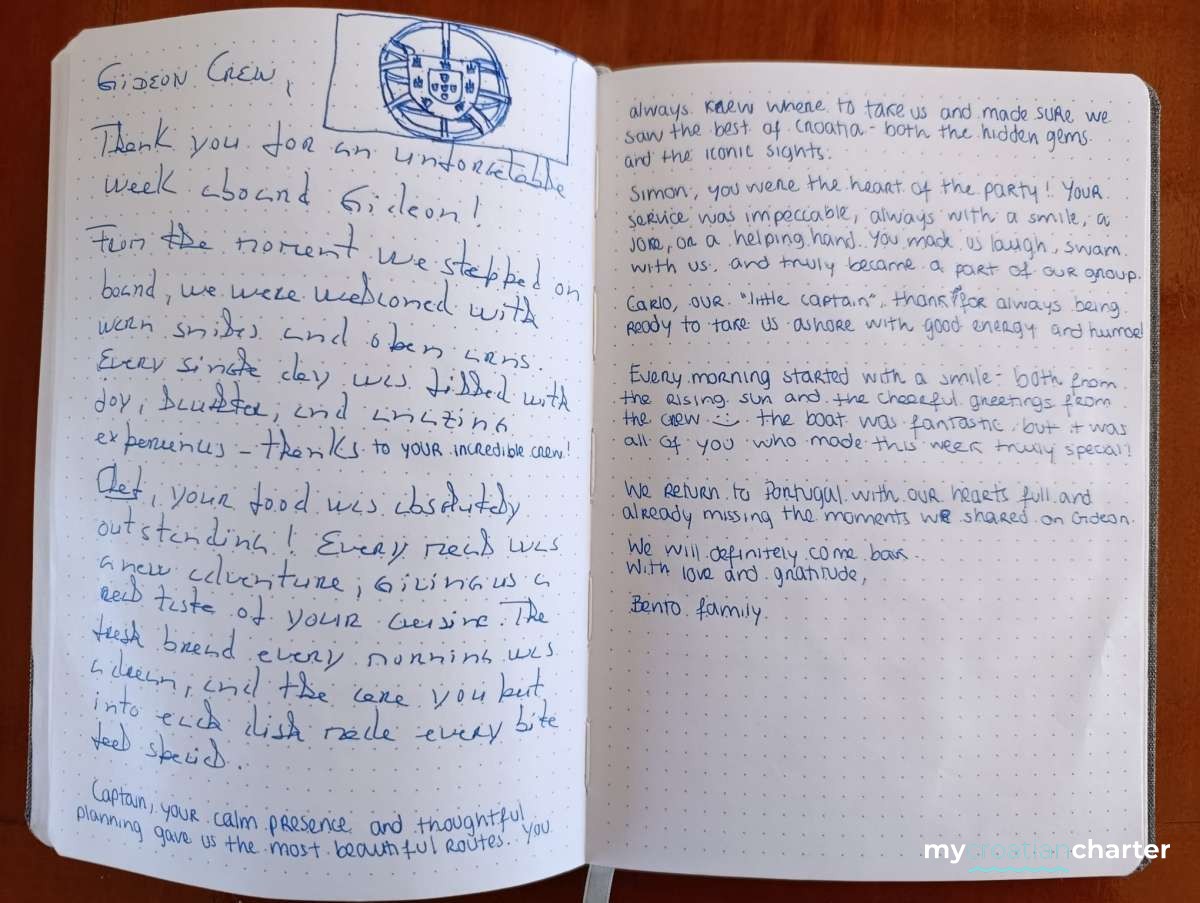 GIDEON CREW,
Thank you for an unforgetable
week aboard Gideon!
From the moment we stepped on
board, we were welcomed with
warm smiles and open arms.
Every single day was filled with
joy, laughter, and amazing
experiences - thanks to your incredible crew!
Chef, your food was absolutely
outstanding! Every meal was
a new adventure, giving us a
real taste of your cuisine. The
fresh bread every morning was
a dream, and the care you put
into each dish made every bite
feel special.
Captain, your calm presence and thoughtful
planning gave us the most beautiful routes. You
always knew where to take us and made sure we
saw the best of Croatia - both the hidden gems
and the iconic sights.
Simon, you were the heart of the party! Your
service was impeccable, always with a smile, a
joke, or a helping hand. You made us laugh, swam
with us, and truly became a part of our group.
Carlo, our "little captain", thank for always being
ready to take us ashore with good energy and humor!
Every morning started with a smile - both from
the rising sun and the cheerful greetings from
the crew :) the boat was fantastic but it was
all of you who made this week truly special!
We return to Portugal with our hearts full and
already missing the moments we shared on Gideon.
We will definitely come back.
With love and gratitude,
Bento family.
mycroatiancharter